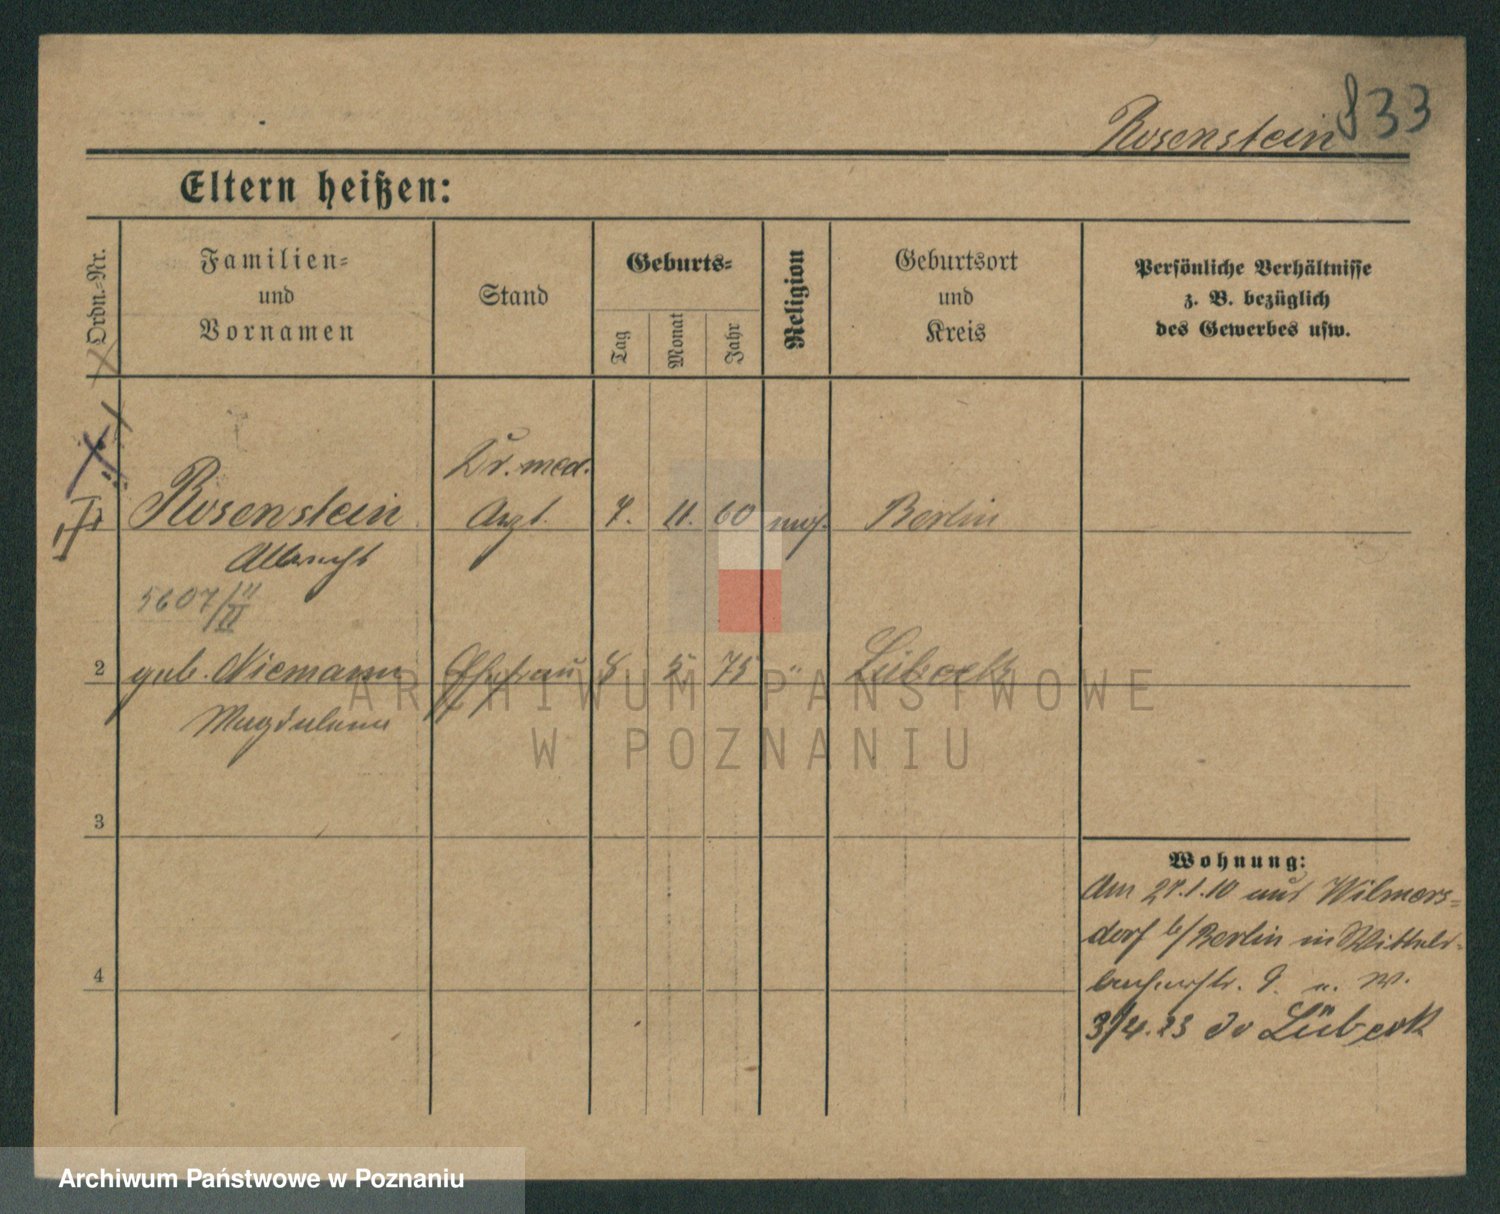 Rosenstein 833
Eltern heißen:
Ordn.-Nr.
Familien-
und
Vornamen
Stand
Geburts-
Tag
Monat
Jahr
Religion
Geburtsort
und
Kreis
Persönliche Verhältnisse
z. B. bezüglich
des Gewerbes usw.
Dr. med.
Rosenstein Arzt. 7. 11. 60 Berlin
Albrecht
5607/II
2 geb. Niemann Ehefrau 8 5 75 " Lübeck
Magdalena
ARCHIWUM PAŃSTWOWE
W POZNANIU
3
4
Wohnung:
Am 27.1.10 aus Wilmers-
dorf b/Berlin in Wittels-
bacherstr. 9. u. W.
3/4.23 Lübeck
Archiwum Państwowe w Poznaniu